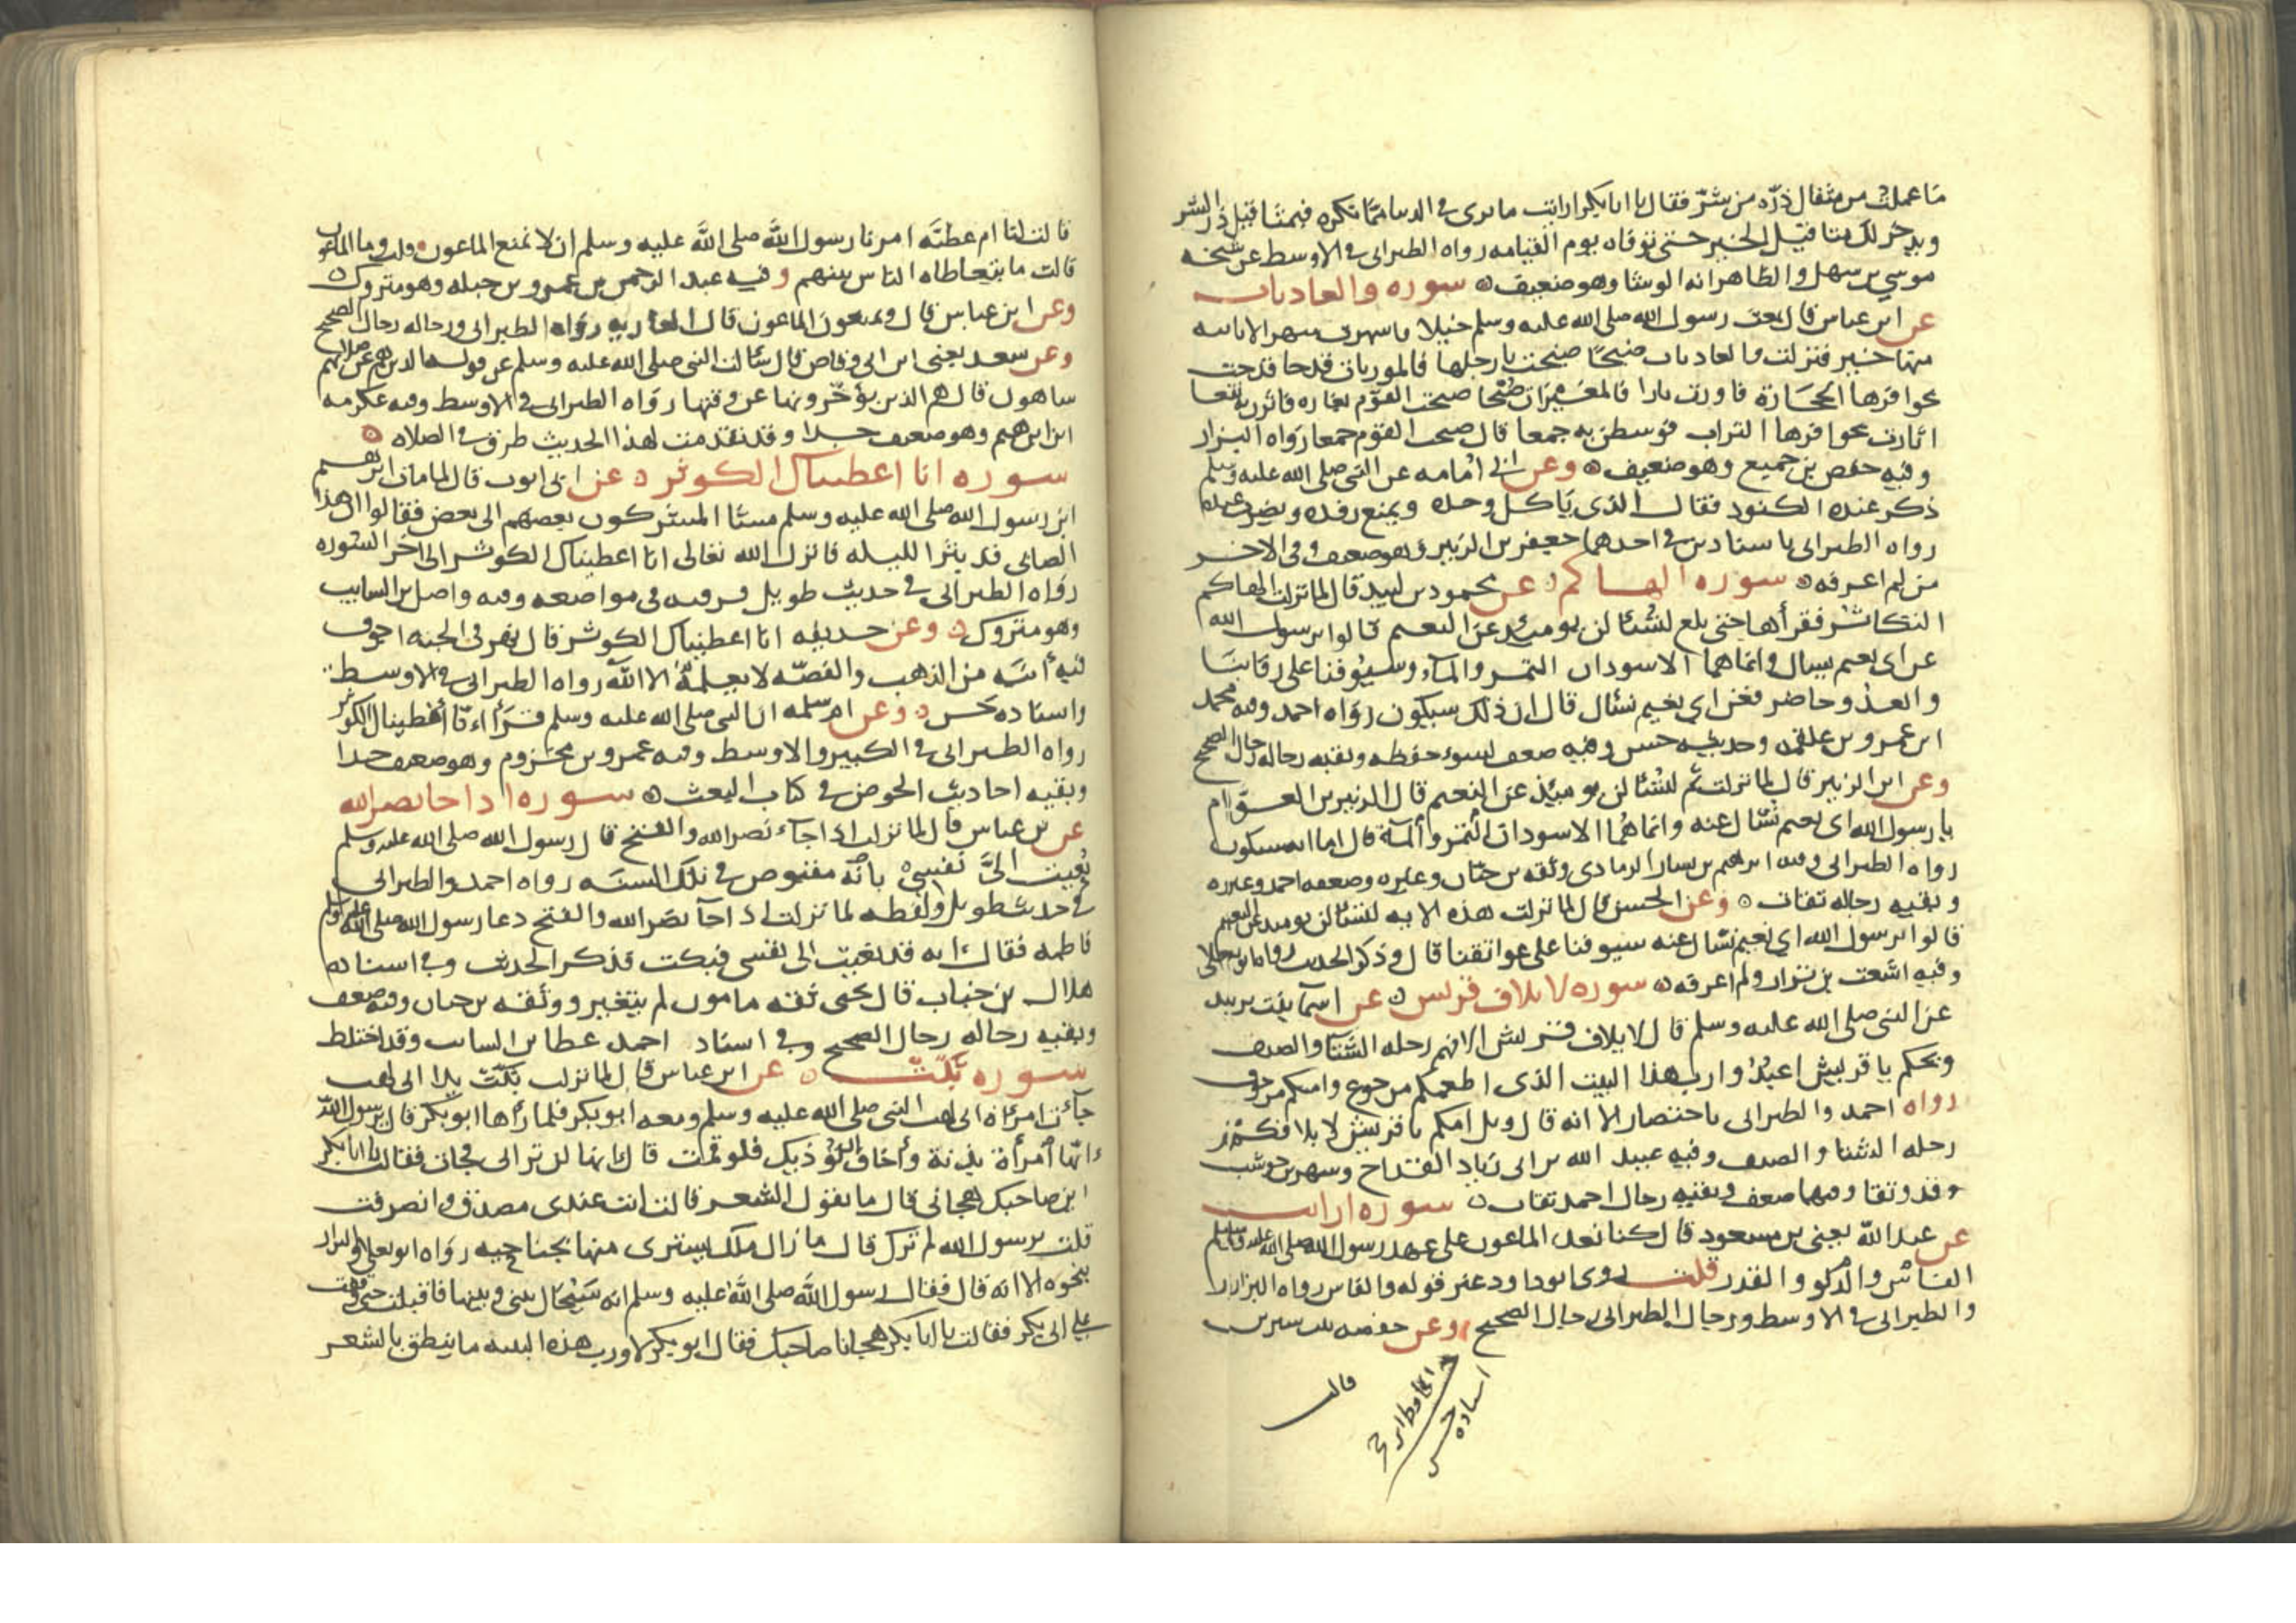 ما عملت من مثقال ذرة من شر فقال يا ابا بكر ارايت ما ترى في الدنيا مما تكره فبمثاقيل ذر الشر
ويدخر لك مثاقيل الخير حتى توفاه يوم القيامه رواه الطبراني في الاوسط عن شيخه
موسى بن سهل والظاهر انه الوشا وهو ضعيف سوره والعاديات
عن ابن عباس قال بعث رسول الله صلى الله عليه وسلم خيلا فاسهرت شهرا لا ياتيه
منها خبر فنزلت والعاديات ضبحا ضبحت بارجلها فالموريات قدحا قدحت
بحوافرها الحجارة فاورت نارا فالمغيرات صبحا صبحت القوم بغاره فاثرن به نقعا
اثارت بحوافرها التراب فوسطن به جمعا قال صبحت القوم جمعا رواه البزار
وفيه حفص بن جميع وهو ضعيف وعن ابي امامه عن النبي صلى الله عليه وسلم
ذكر عنده الكنود فقال الذي ياكل وحده ويمنع رفده ويضرب عبده
رواه الطبراني باسنادين في احدهما جعفر بن الزبير وهو ضعيف وفي الاخر
من لم اعرفه سوره الهاكم عن محمود بن لبيد قال لما نزلت الهاكم
التكاثر فقراها حتى بلغ لتسئلن يومئذ عن النعيم قالوا يرسول الله
عن اي نعيم نسال وانما هما الاسودان التمر والماء وسيوفنا على رقابنا
والعدو حاضر فعن اي نعيم نسئال قال ان ذلك سيكون رواه احمد وفيه محمد
ابن عمرو بن علقمه وحديثه حسن وفيه ضعف لسوء حفظه وبقيه رجاله رجال الصحيح
وعن ابن الزبير قال لما نزلت ثم لتسئلن يومئذ عن النعيم قال الزبير بن العوام
يا رسول الله اى نعيم نسئال عنه وانما هما الاسودان التمر والماء قال اما انه سيكون
رواه الطبراني وفيه ابرهيم بن بشار الرمادى وثقه بن حبان وغيره وضعفه احمد وغيره
وبقيه رجاله ثقات وعن الحسن قال لما نزلت هذه الايه لتسئلن يومئذ عن النعيم
قالوا يرسول الله اي نعيم نسال عنه سيوفنا على عواتقنا قال وذكر الحديث رواه ابو يعلى
وفيه اشعث بن براز ولم اعرفه سوره لايلاف قريش عن اسما بنت يزيد
عن النبي صلى الله عليه وسلم قال لايلاف قريش الافهم رحله الشتا والصيف
ويحكم يا قريش اعبدوا رب هذا البيت الذى اطعمكم من جوع وامنكم من خوف
رواه احمد والطبراني باختصار الا انه قال ويل امكم يا قريش لايلافكم
رحله الشتا والصيف وفيه عبيد الله بن ابي زياد القداح وشهر بن حوشب
وقد وثقا وفيهما ضعف وبقيه رجال احمد ثقات سوره ارايت
عن عبد الله يعني بن مسعود قال كنا نعد الماعون على عهد رسول الله صلى الله عليه وسلم
الفاس والدلو والقدر قلت روى ابو داود غير قوله والفاس رواه البزار
والطبراني في الاوسط ورجال الطبراني رجال الصحيح وعن حفصه بنت سيرين
قالت
اسناده حسن
قالت لنا ام عطيه امرنا رسول الله صلى الله عليه وسلم ان لا نمنع الماعون قلت وما الماعون
قالت ما يتعاطاه الناس بينهم وفيه عبد الرحمن بن عمرو بن جبله وهو متروك
وعن ابن عباس قال ويمنعون الماعون قال العاريه رواه الطبراني ورجاله رجال الصحيح
وعن سعد يعني ابن ابي وقاص قال سالت النبي صلى الله عليه وسلم عن قوله الذين هم عن صلاتهم
ساهون قال هم الذين يؤخرونها عن وقتها رواه الطبراني في الاوسط وفيه عكرمه
ابن ابرهيم وهو ضعيف جدا وقد تقدمت لهذا الحديث طرق في الصلاه
سوره انا اعطيناك الكوثر عن ابي ايوب قال لما مات ابرهيم
ابن رسول الله صلى الله عليه وسلم مشا المشركون بعضهم الى بعض فقالوا ان هذا
الصابي قد بتر الليله فانزل الله تعالى انا اعطيناك الكوثر الى اخر السوره
رواه الطبراني في حديث طويل فرقته في مواضعه وفيه واصل بن السايب
وهو متروك وعن حذيفه انا اعطيناك الكوثر قال نهر في الجنه اجوف
فيه انيه من الذهب والفضه لا يعلمه الا الله رواه الطبراني في الاوسط
واسناده حسن وعن ام سلمه ان النبي صلى الله عليه وسلم قراء انا اعطيناك الكوثر
رواه الطبراني في الكبير والاوسط وفيه عمرو بن مخزوم وهو ضعيف جدا
وبقيه احاديث الحوض في كتاب البعث سوره اذا جا نصر الله
عن بن عباس قال لما نزلت اذا جاء نصر الله والفتح قال رسول الله صلى الله عليه وسلم
نعيت الى نفسي بانه مقبوض في تلك السنه رواه احمد والطبراني
في حديث طويل ولفظه لما نزلت اذا جا نصر الله والفتح دعا رسول الله صلى الله عليه وسلم
فاطمه فقال انه قد نعيت الى نفسي فبكت فذكر الحديث وفي اسناده
هلال بن خباب قال يحيى ثقه مامون لم يتغير ووثقه بن حبان وفيه ضعف
وبقيه رجاله رجال الصحيح وفي اسناد احمد عطا بن السايب وقد اختلط
سوره تبت عن ابن عباس قال لما نزلت تبت يدا ابي لهب
جاءت امراة ابي لهب النبي صلى الله عليه وسلم ومعه ابو بكر فلما راها ابو بكر قال يرسول الله
انها امراة بذيئة واخاف ان تؤذيك فلو قمت قال انها لن تراني فجات فقالت يا ابا بكر
ان صاحبك هجاني قال ما يقول الشعر قالت انت عندى مصدق وانصرفت
قلت يرسول الله لم ترك قال ما زال ملك يسترني منها بجناحيه رواه ابو يعلى والبزار
بنحوه الا انه قال فقال رسول الله صلى الله عليه وسلم انه سيحال بيني وبينها فاقبلت حتى وقفت
على ابي بكر فقالت يا ابا بكر هجانا صاحبك فقال ابو بكر لا ورب هذه البنيه ما ينطق بالشعر